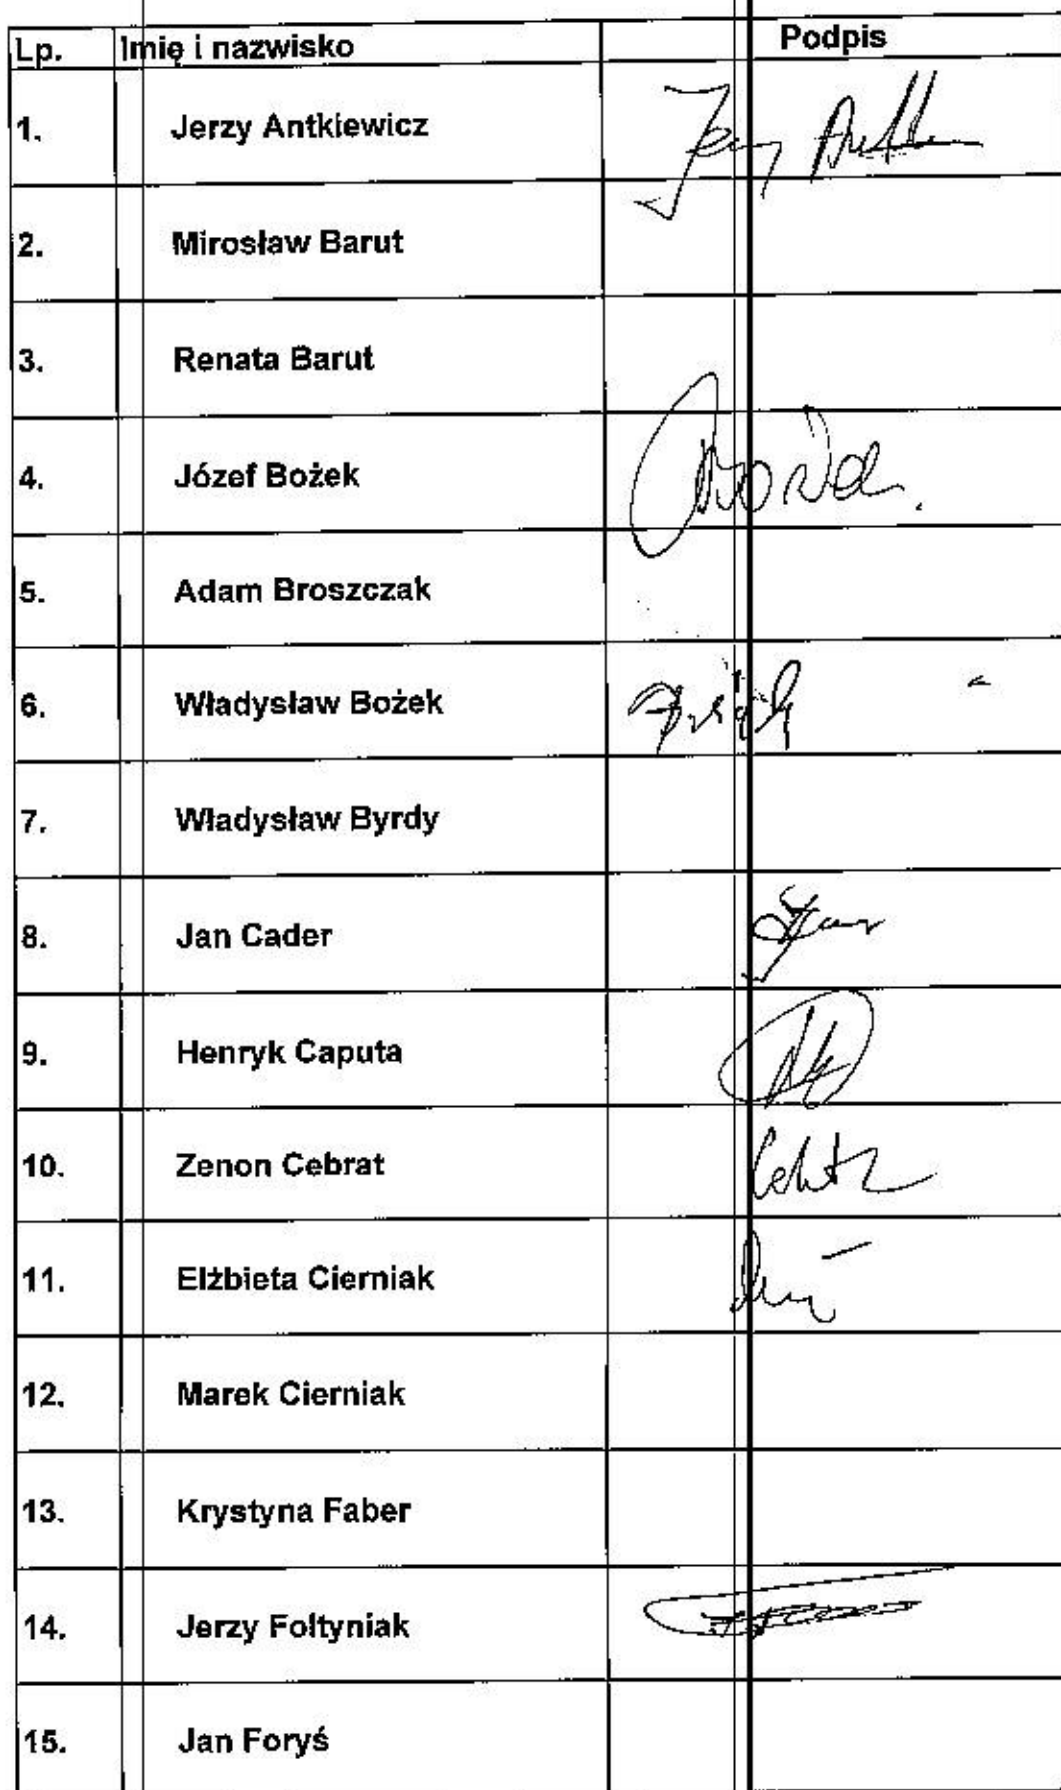 Lp. Imię i nazwisko Podpis
1. Jerzy Antkiewicz
2. Mirosław Barut
3. Renata Barut
4. Józef Bożek
5. Adam Broszczak
6. Władysław Bożek
7. Władysław Byrdy
8. Jan Cader
9. Henryk Caputa
10. Zenon Cebrat
11. Elżbieta Cierniak
12. Marek Cierniak
13. Krystyna Faber
14. Jerzy Fołtyniak
15. Jan Foryś